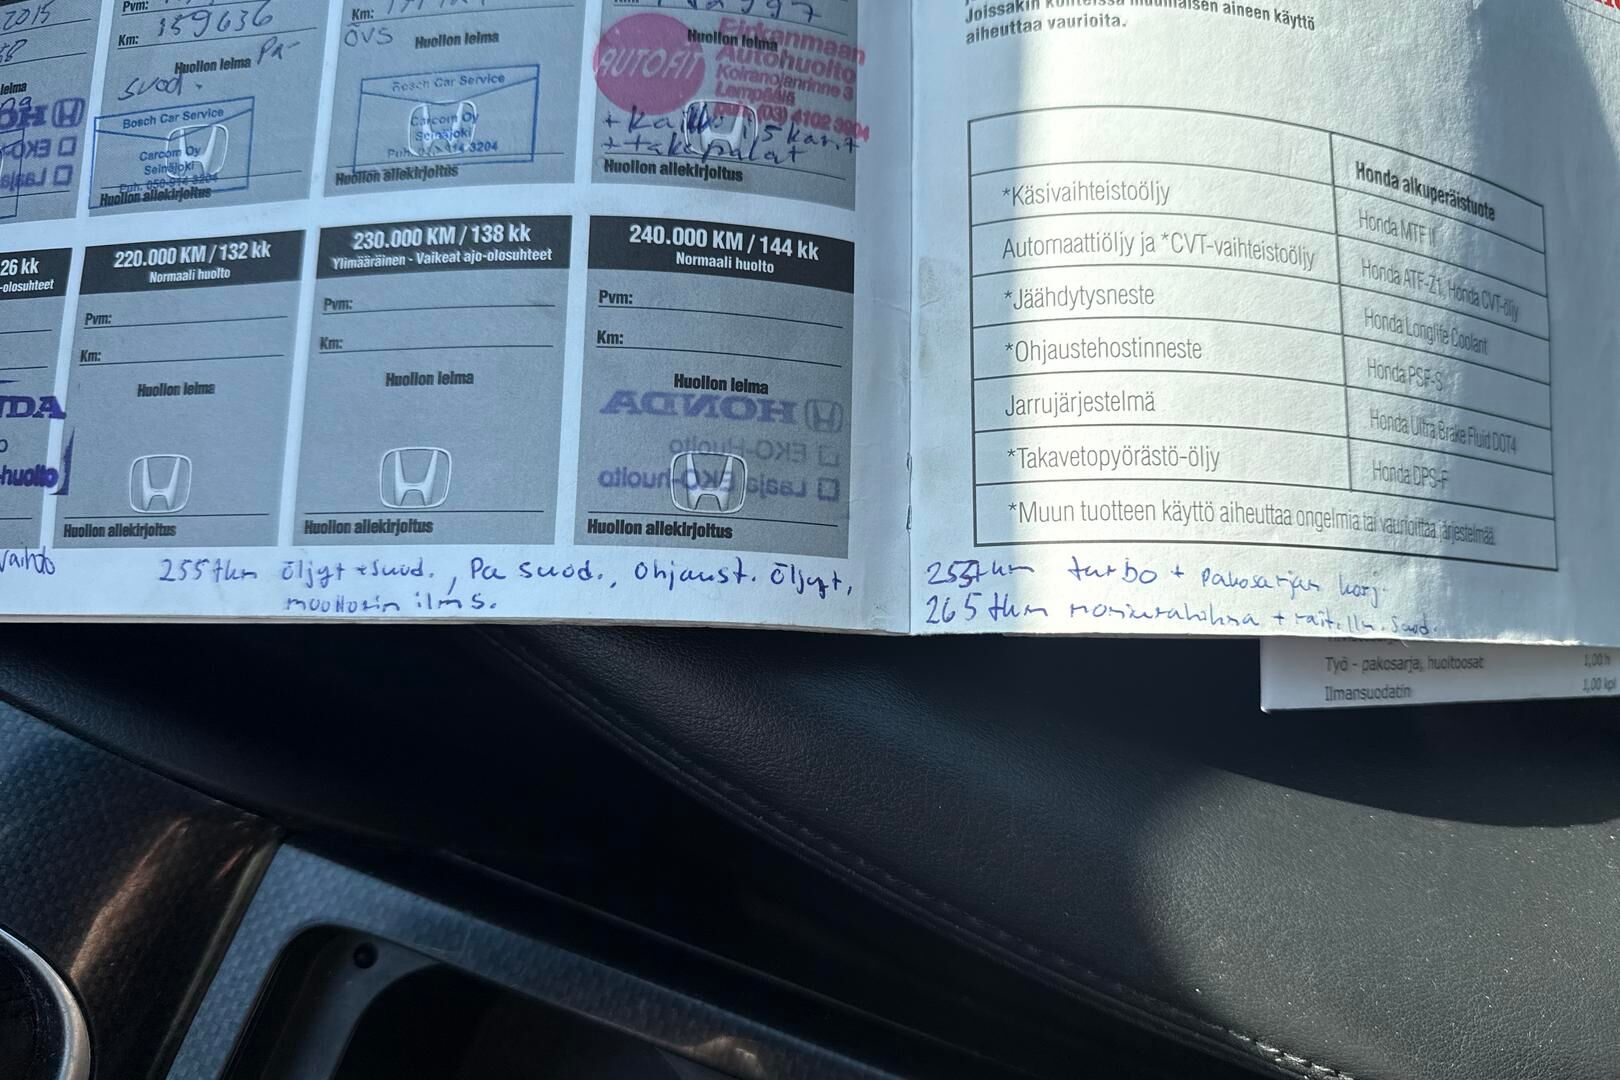 2015
Pvm:
Km: 159636
Huollon leima Pa-
suod.
Bosch Car Service
Carcom Oy
Seinäjoki
Puh. 050-914 3204
Huollon allekirjoitus
Km:
ÖVS
Huollon leima
Bosch Car Service
Carcom Oy
Seinäjoki
3204
Huollon allekirjoitus
Huollon leima
AUTOFIT
Pirkanmaan
Autohuolto
Koiranojanrinne 3
Lempäälä
Puh. (03) 4102 3904
+ takapalat
Huollon allekirjoitus
26 kk
-olosuhteet
220.000 KM / 132 kk
Normaali huolto
Pvm:
Km:
Huollon leima
Huollon allekirjoitus
230.000 KM / 138 kk
Ylimääräinen - Vaikeat ajo-olosuhteet
Pvm:
Km:
Huollon leima
Huollon allekirjoitus
240.000 KM / 144 kk
Normaali huolto
Pvm:
Km:
Huollon leima
HONDA
EKO-Huolto
Laaja EKO-huolto
Huollon allekirjoitus
NDA
-huolto
vaihto
255tkm öljyt + suod., Pa suod., Ohjaust. öljyt,
moottorin ilms.
Joissakin muunlaisen aineen käyttö
aiheuttaa vaurioita.
Honda alkuperäistuote
*Käsivaihteistoöljy Honda MTF II
Automaattiöljy ja *CVT-vaihteistoöljy Honda ATF-Z1, Honda CVT-öljy
*Jäähdytysneste Honda Longlife Coolant
*Ohjaustehostinneste Honda PSF-S
Jarrujärjestelmä Honda Ultra Brake Fluid DOT4
*Takavetopyörästö-öljy Honda DPS-F
*Muun tuotteen käyttö aiheuttaa ongelmia tai vaurioittaa järjestelmää.
255tkm turbo + pakosarjan korj.
265tkm moniurahihna + rait.ilm.suod.
Työ - pakosarja, huoltoosat 1,00 h
Ilmansuodatin 1,00 kpl